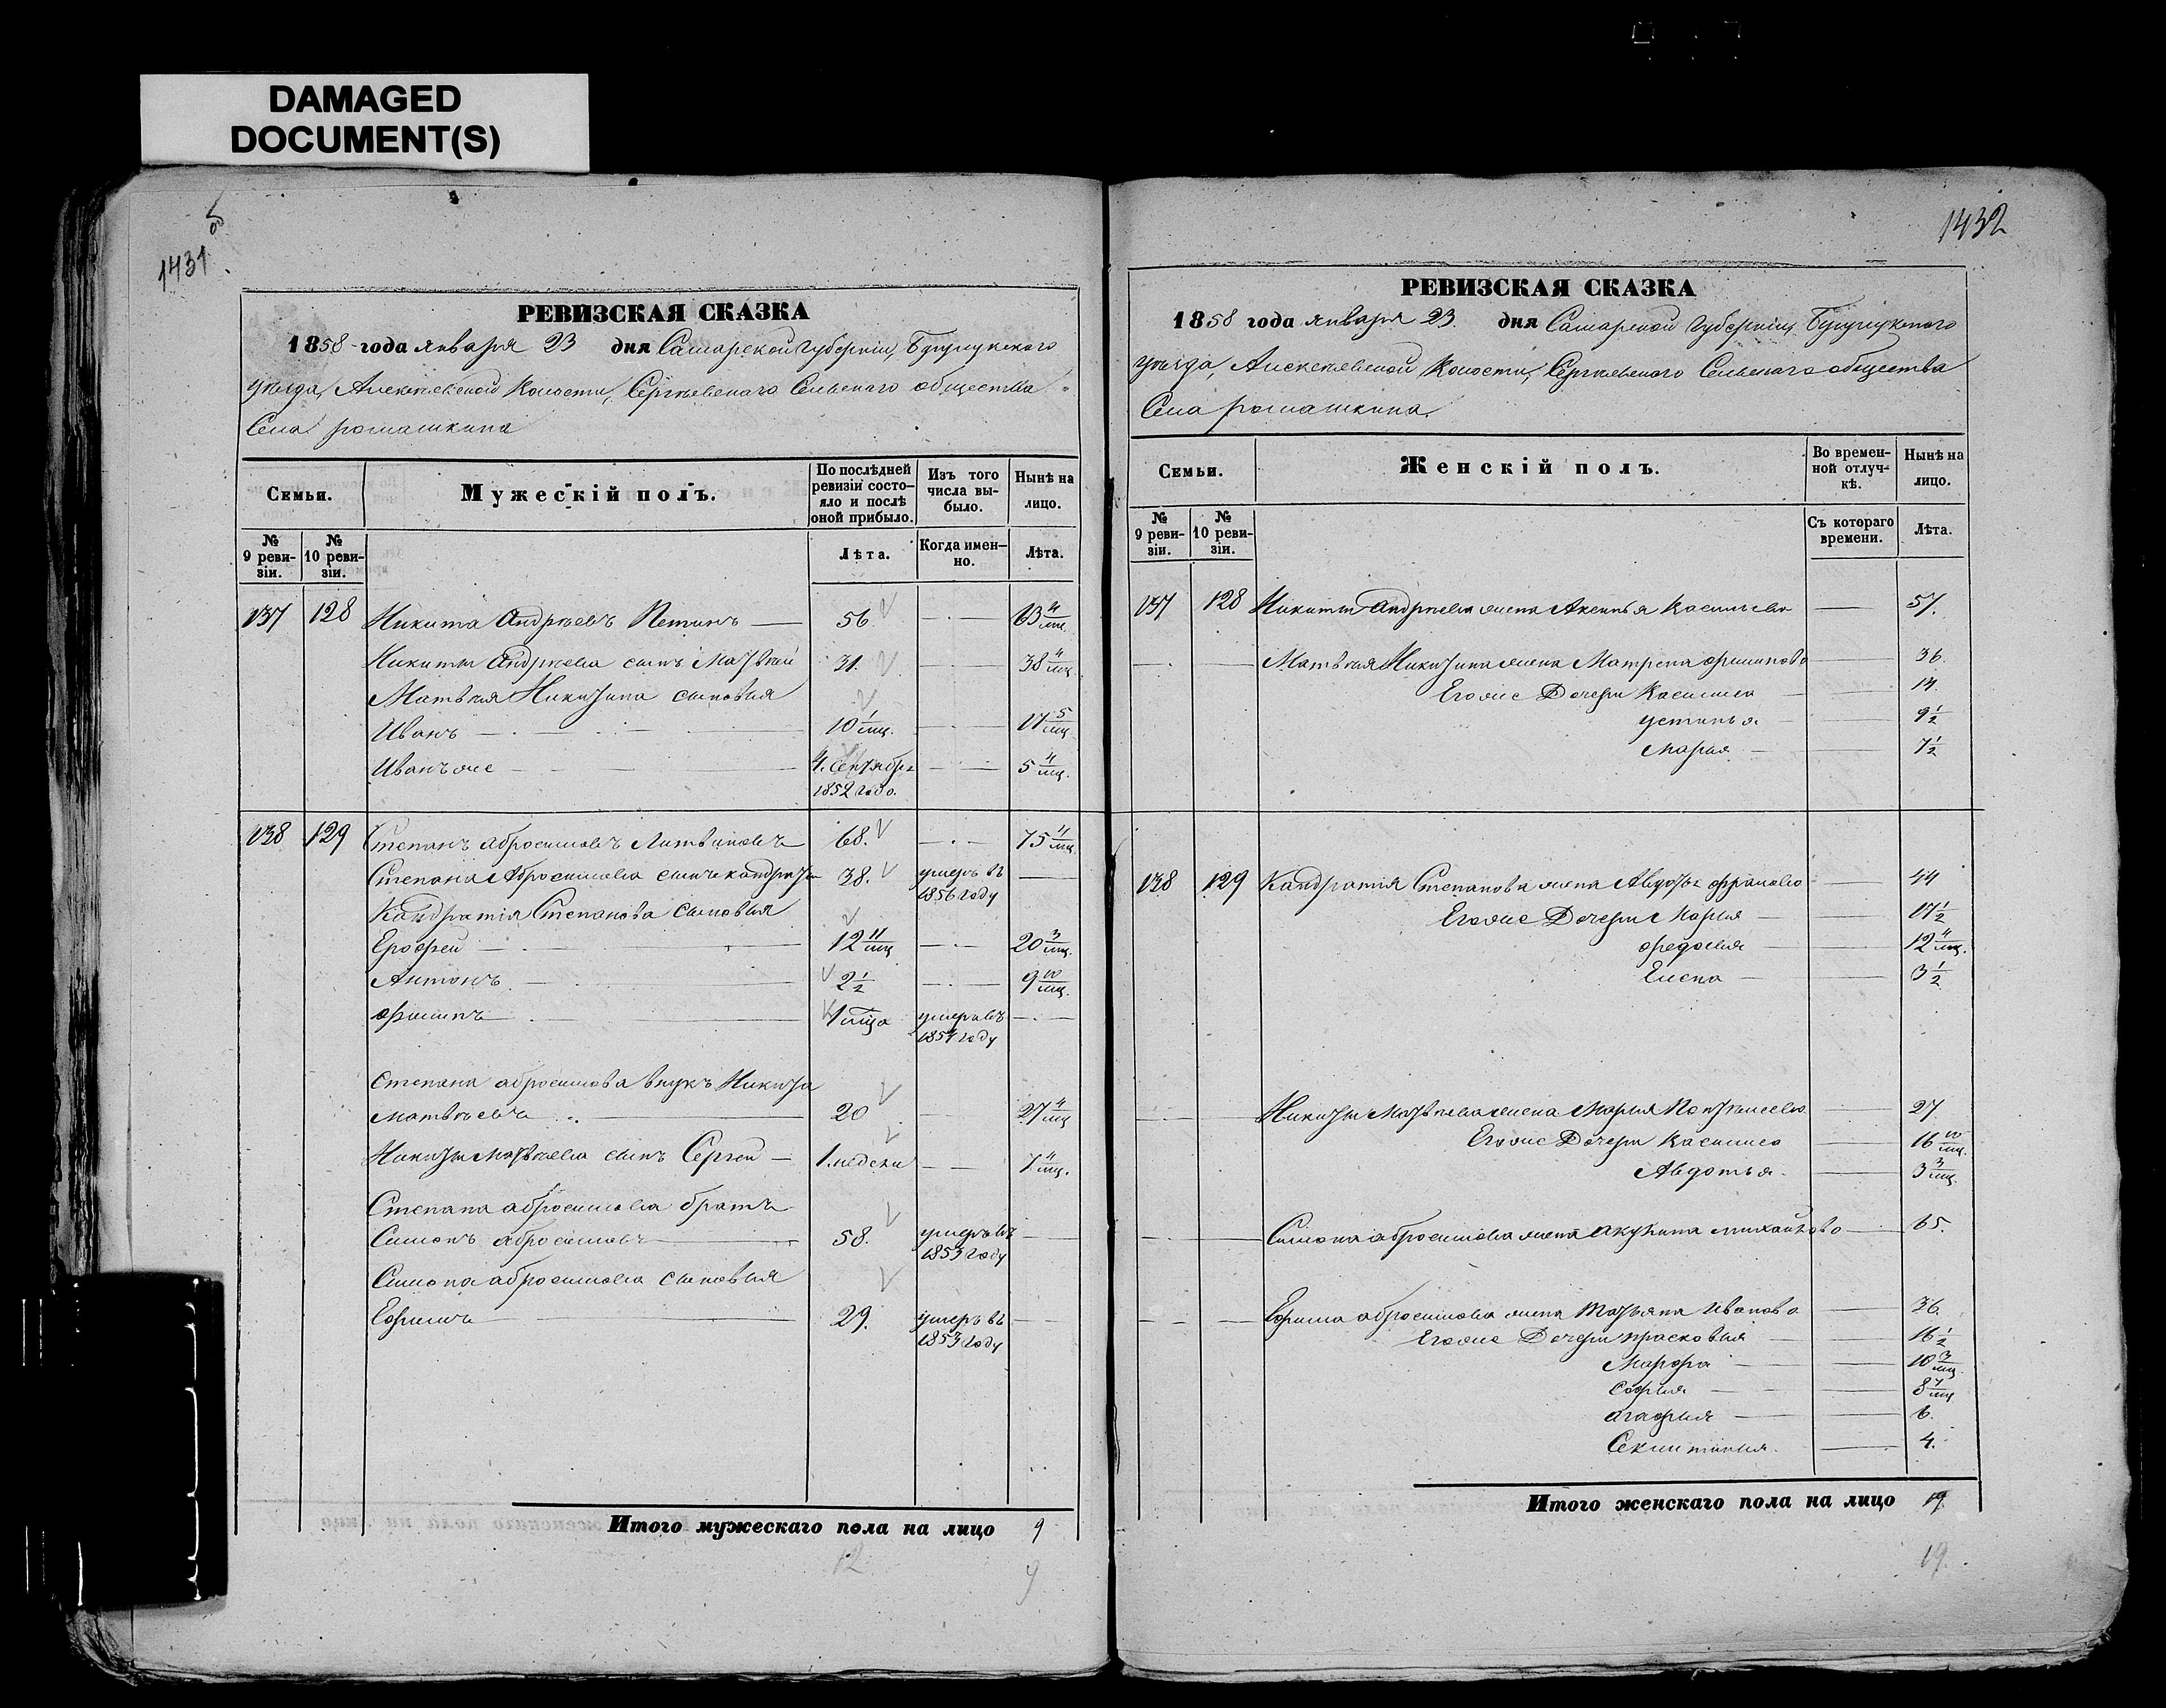 DAMAGED
DOCUMENT(S)
1431
об
РЕВИЗСКАЯ СКАЗКА
1858 года января 23 дня Самарской губерніи, Бузулукского
уѣзда, Алексѣевской волости, Сергѣевского Сельского общества
Села Ромашкина
Семьи.
Мужескій полъ.
По послѣдней ревизіи состояло и послѣ оной прибыло.
Изъ того числа выбыло.
Нынѣ на лицо.
№ 9 ревизіи.
№ 10 ревизіи.
Лѣта.
Когда именно.
Лѣта.
137 128 Никита Андрѣевъ 56. 63 4/мц.
Никиты Андрѣева сынъ Матвѣй 31. 38 4/мц.
Матвѣя Никитина сыновья
Иванъ 10 1/мц. 17 5/мц.
Иванъ же 4. Сентября 5 4/мц.
1852 года.
138 129 Степанъ Абросимовъ Литвиновъ 68. 75 4/мц.
Степана Абросимова сынъ Кандратій 38. умеръ въ
1856 году
Кандратія Степанова сыновья
Ерофей 12 11/мц 20 3/мц.
Антонъ 2 1/2 9 10/мц.
Филипъ 1 мца умеръ въ
1854 году
Степана Абросимова внукъ Никита
Матвѣевъ 20 27 4/мц
Никиты Матвѣева сынъ Сергей 1. недели 7 4/мц.
Степана Абросимова братъ
Симонъ Абросимовъ 58. умеръ въ
1853 году
Симона Абросимова сыновья
Ефимъ 29. умеръ въ
1853 году
Итого мужескаго пола на лицо 9
12 9
1432
РЕВИЗСКАЯ СКАЗКА
1858 года января 23. дня Самарской губерніи, Бузулукского
уѣзда, Алексѣевской волости, Сергѣевского Сельского общества
Села Ромашкина.
Семьи.
Женскій полъ.
Во временной отлучкѣ.
Нынѣ на лицо.
№ 9 ревизіи.
№ 10 ревизіи.
Съ котораго времени.
Лѣта.
137 128 Никиты Андрѣева жена Аксинья Васильева 57.
Матвѣя Никитина жена Матрена Филипова 36.
Его же Дочери Василиса 14.
Устинья 9 1/2
Марья 7 1/2
138 129 Кандратія Степанова жена Авдотья 44
Его же Дочери Марья 17 1/2
Федосья 12 4/мц.
Елена 3 1/2
Никиты Матвѣева жена Марья 27
Его же Дочери Василиса 16 10/мц.
Авдотья 3 3/мц.
Симона Абросимова жена Акулина Михайлова 65.
Ефима Абросимова жена Татьяна Иванова 36.
Его же Дочери Прасковья 16 1/2
Марфа 10 3/мц.
Софья 8 4/мц
Агафья 6.
4.
Итого женскаго пола на лицо 19.
19.